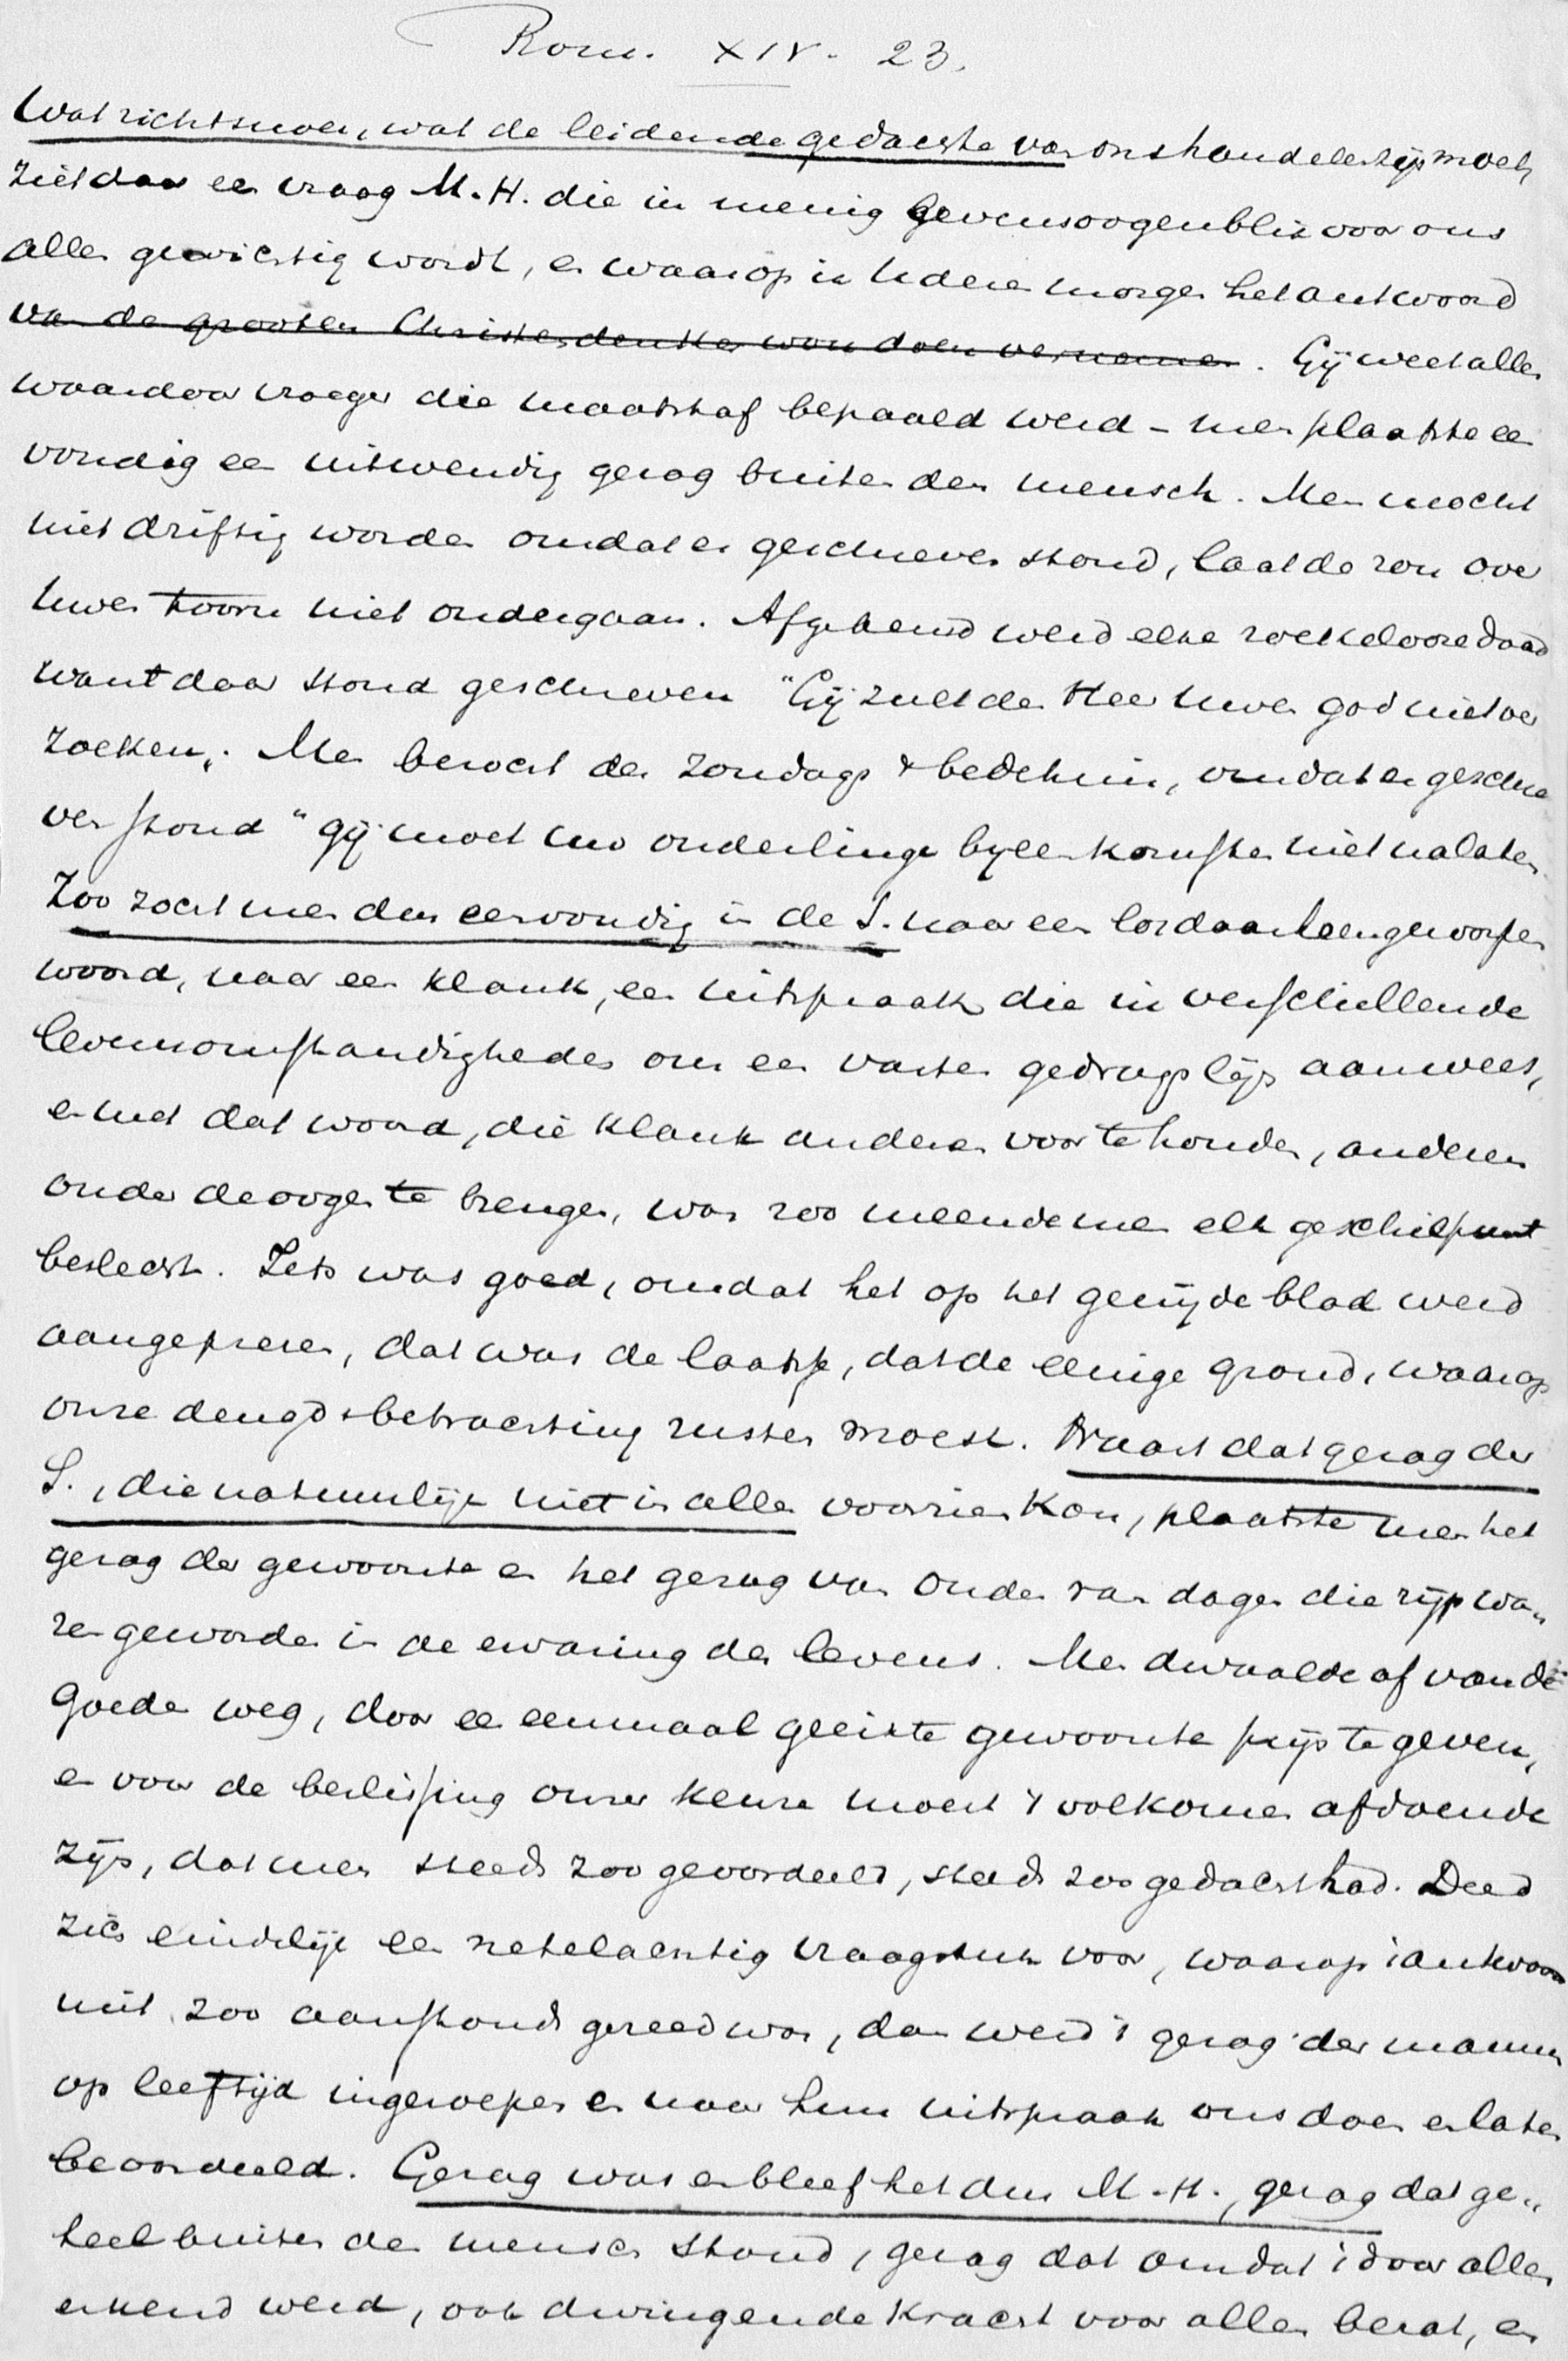 Rom. XIV. 23.
Wat richtsnoer, wat de leidende gedachte van ons handelen zijn moet,
Ziet daar een vraag M.H. die in menig levensoogenblik voor ons
allen gewichtig wordt, en waarop ik Uden morgen het antwoord
van de grooten Christendenker wou doen vernemen. Gij weet allen
waardoor vroeger die maatstaf bepaald werd – men plaatste een
voudig een uitwendig gezag buiten den mensch. Men mocht
niet driftig worden omdat er geschreven stond, laat de zon over
uwen toorn niet ondergaan. Afgekeurd werd elke roekelooze daad
want daar stond geschreven "Gij zult den Heer uwen god niet ver
zoeken". Men bezocht des Zondags 't bedehuis, omdat er geschre
ven stond "gij moet uw onderlinge byeenkomsten niet nalaten
Zoo zocht men dus eenvoudig in de S. naar een los daarheengeworpen
woord, naar een klank, een uitspraak die in verschillende
levensomstandigheden ons een vaste gedragslijn aanwees,
en met dat woord, die klank anderen voor te houden, anderen
onder de oogen te brengen, was zoo meende men elk geschilpunt
beslecht. Iets was goed, omdat het op het gewijde blad werd
aangeprezen, dat was de laatste, dat de eenige grond, waarop
onze deugdsbetrachting rusten moest. Naast dat gezag der
S., die natuurlijk niet in alles voorzien kon, plaatste men het
gezag der gewoonte en het gezag van Ouden van dagen die rijp wa„
ren geworden in de ervaring des levens. Men dwaalde af van de
goeden weg, door een eenmaal geeikte gewoonte prijs te geven,
en voor de beslissing onzer keuze moest 't volkomen afdoende
zijn, dat men steeds zoo geoordeeld, steeds zoo gedacht had. Deed
zich eindelijk een netelachtig vraagstuk voor, waarop 't antwoord
niet zoo aanstonds gereed was, dan werd 't gezag der mannen
op leeftijd ingeroepen en naar hun uitspraak ons doen en laten
beoordeeld. Gezag was en bleef het dus M.H., gezag dat ge„
heel buiten den mensch stond, gezag dat omdat 't door allen
erkend werd, ook dwingende kracht voor allen bezat, en